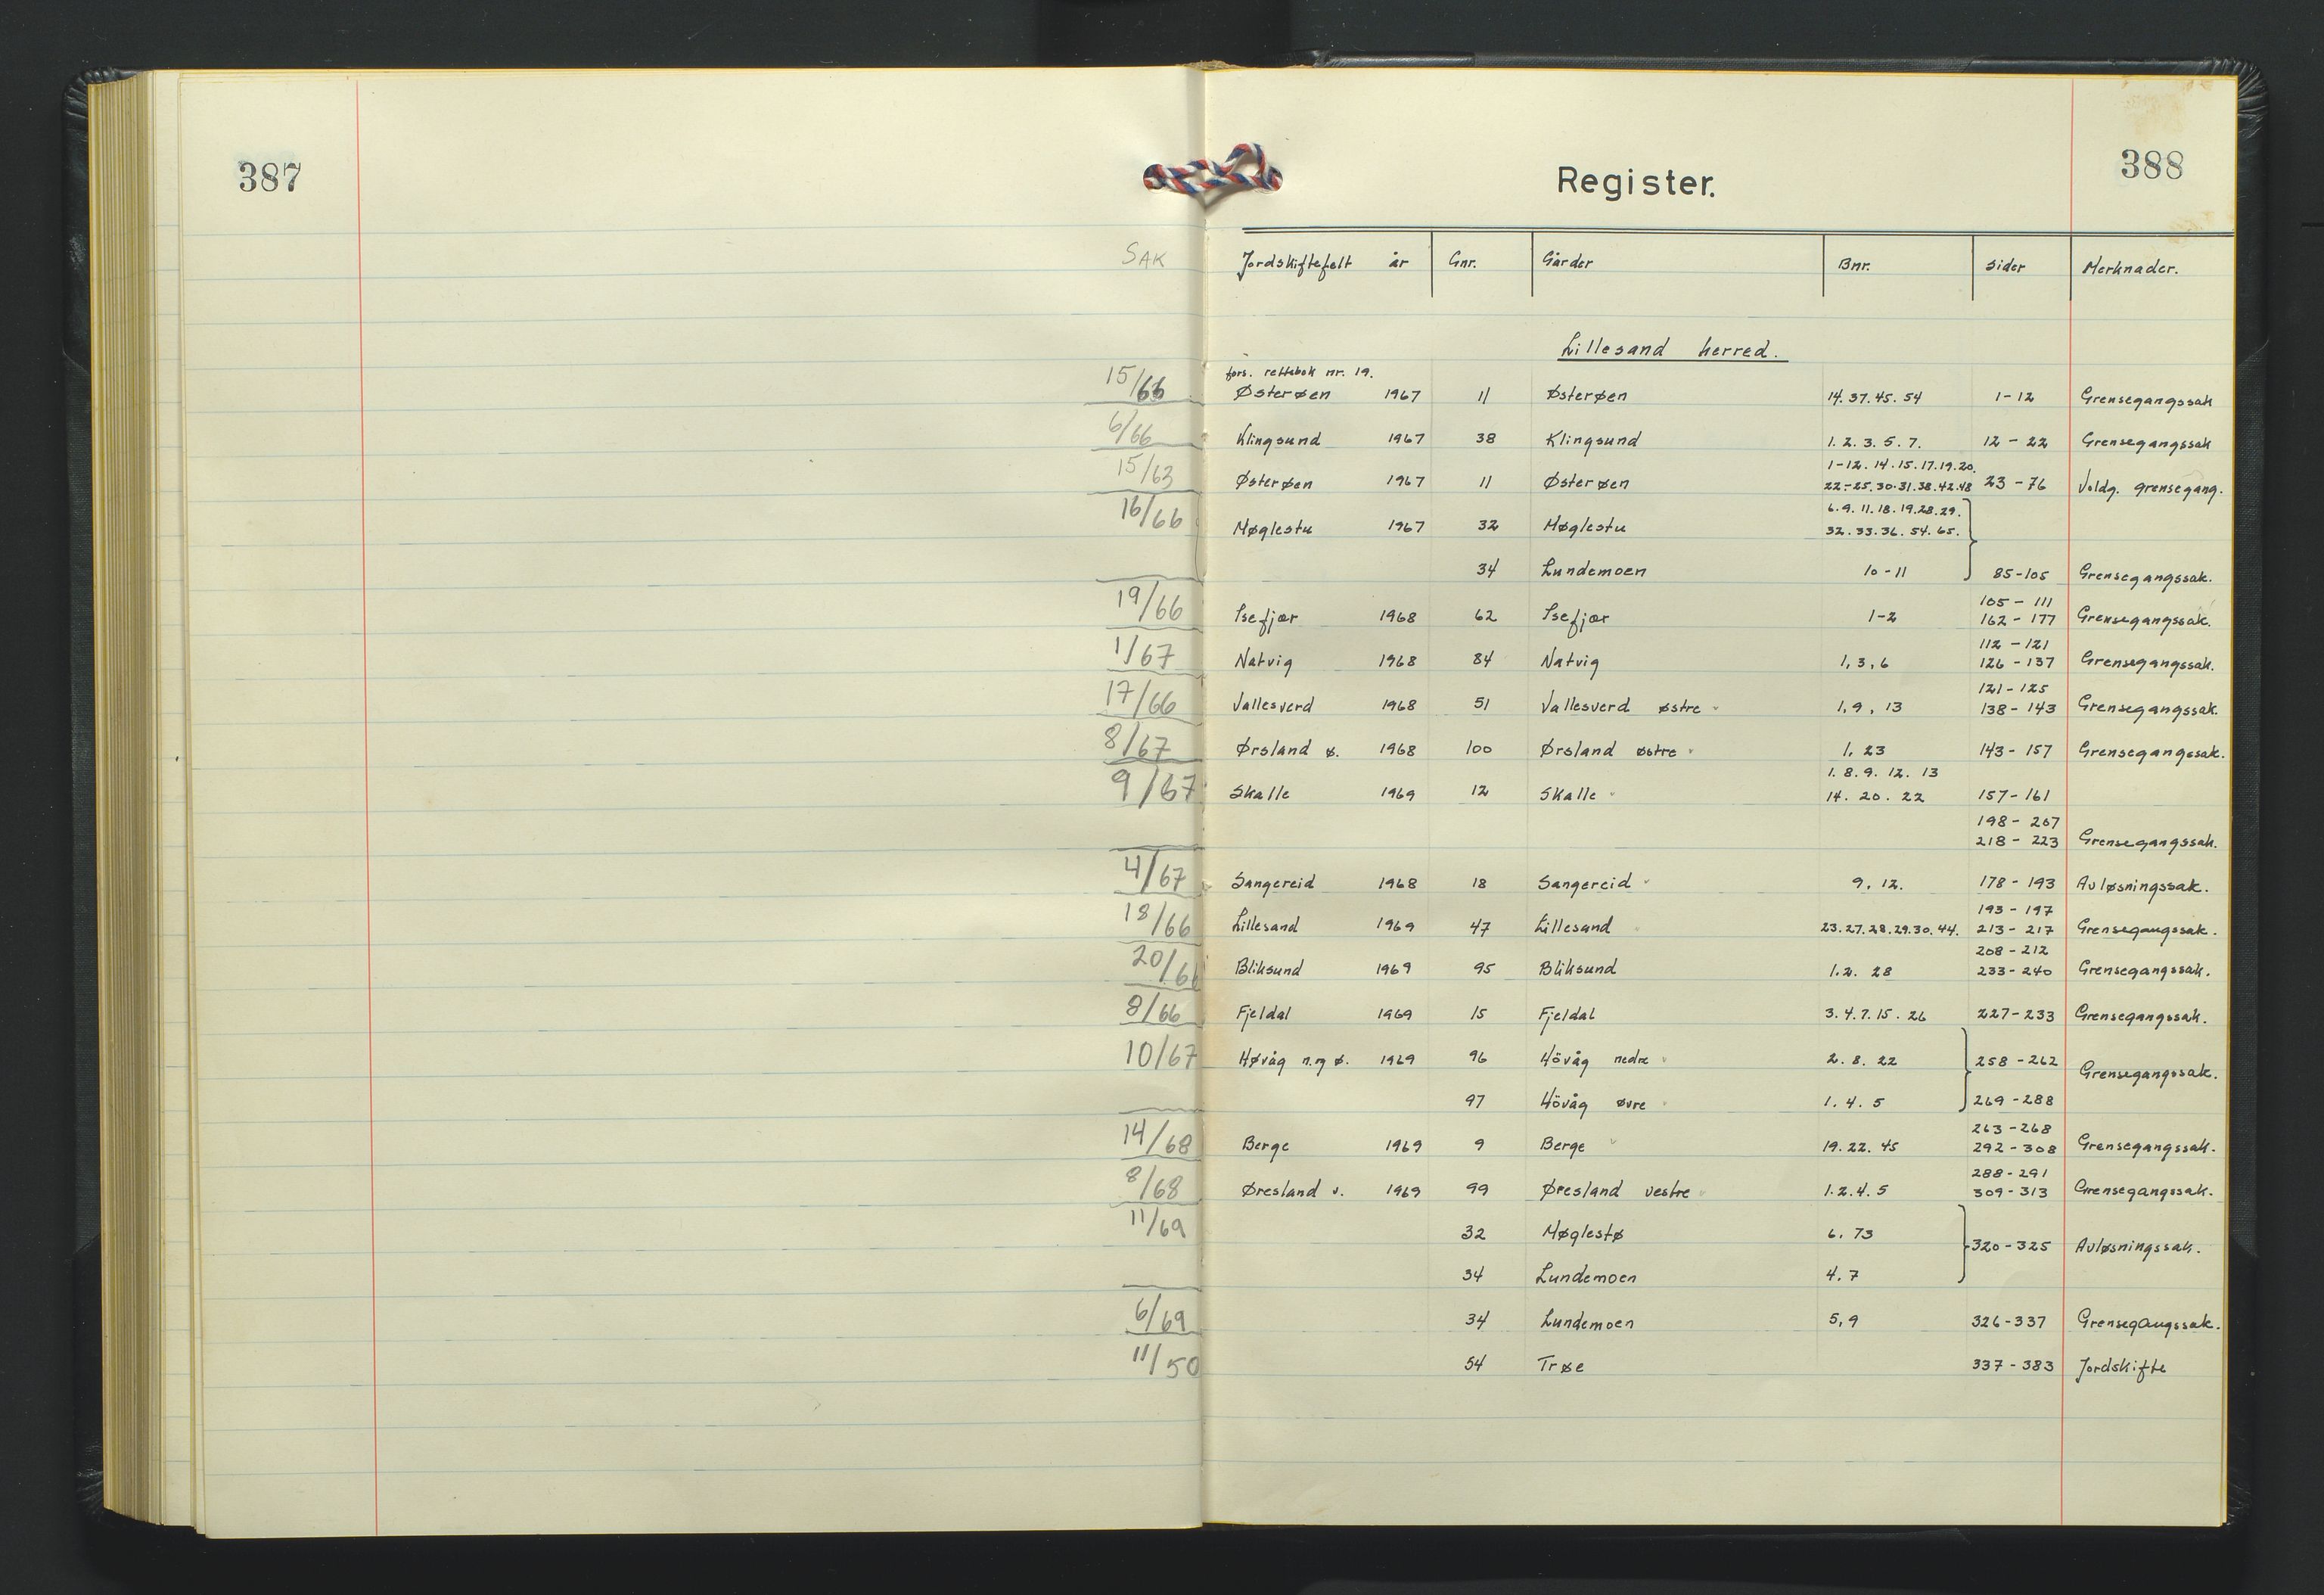 387
388
Register.
SAK Jordskiftefelt år Gnr. Gårder Bnr. Sider Merknader.
Lillesand herred.
fors. rettsbok nr. 19.
15/66 Østerøen 1967 11 Østerøen 14. 37. 45. 54 1-12 Grensegangssak
6/66 Klingsund 1967 38 Klingsund 1. 2. 3. 5. 7. 12 - 22 Grensegangssak
1-12. 14. 15. 17. 19. 20.
15/63 Østerøen 1967 11 Østerøen 22-25. 30. 31. 38. 42. 48 23 - 76 Voldg. grensegang.
6. 9. 11. 18. 19. 28. 29.
16/66 Møglestu 1967 32 Møglestu 32. 33. 36. 54. 65.
34 Lundemoen 10 - 11 85-105 Grensegangssak.
105 - 111
19/66 Isefjær 1968 62 Isefjær 1-2 162 - 177 Grensegangssak.
112 - 121
1/67 Natvig 1968 84 Natvig 1, 3, 6 126 - 137 Grensegangssak.
121 - 125
17/66 Vallesverd 1968 51 Vallesverd østre 1, 9, 13 138 - 143 Grensegangssak.
8/67 Ørsland ø. 1968 100 Ørsland østre 1, 23 143 - 157 Grensegangssak.
1. 8. 9. 12. 13
9/67 Skalle 1969 12 Skalle 14. 20. 22 157 - 161
198 - 207
218 - 223 Grensegangssak.
4/67 Sangereid 1968 18 Sangereid 9. 12. 178 - 193 Avløsningssak.
193 - 197
18/66 Lillesand 1969 47 Lillesand 23. 27. 28. 29. 30. 44. 213 - 217 Grensegangssak.
208 - 212
20/66 Bliksund 1969 95 Bliksund 1. 2. 28 233 - 240 Grensegangssak.
8/66 Fjeldal 1969 15 Fjeldal 3. 4. 7. 15. 26 227 - 233 Grensegangssak.
10/67 Høvåg n. og ø. 1969 96 Hövåg nedre 2. 8. 22 258 - 262 Grensegangssak.
97 Hövåg øvre 1. 4. 5 269 - 288
263 - 268
14/68 Berge 1969 9 Berge 19. 22. 45 292 - 308 Grensegangssak.
288 - 291
8/68 Øresland v. 1969 99 Øresland vestre 1. 2. 4. 5 309 - 313 Grensegangssak.
11/69 32 Møglestø 6. 73 320 - 325 Avløsningssak.
34 Lundemoen 4. 7
6/69 34 Lundemoen 5, 9 326 - 337 Grensegangssak.
11/50 54 Trøe 337 - 383 Jordskifte